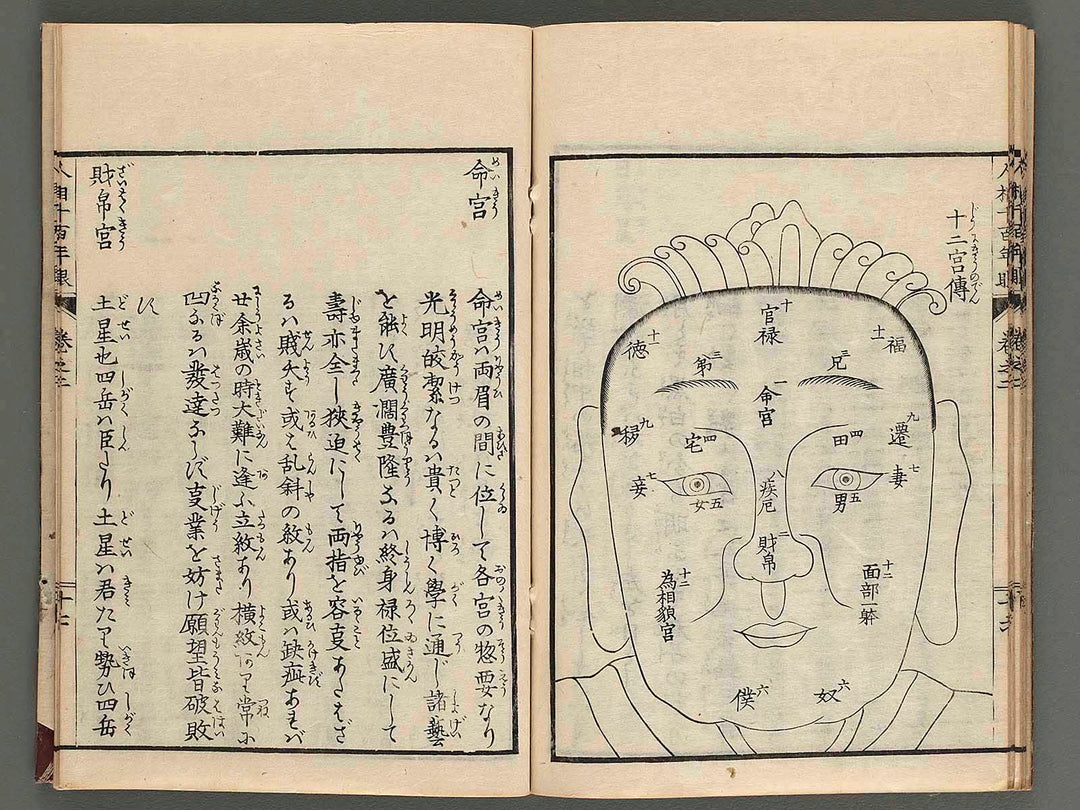 十二宮傳
十官禄
十一福
十一徳
三兄
三弟
一命宮
九遷
九移
四田
四宅
七妻
七妾
五男
五女
八疾厄
二財帛
十二面部一躰
十二為相貌宮
六奴
六僕
命宮
命宮ハ両眉の間に位して各宮の惣要なり
光明皎潔なるハ貴く博く學に通じ諸藝
を能す廣濶豊隆なるハ終身禄位盛にして
壽亦全し狹迫にして両指を容叓あたはざ
るハ賎夭す或は乱斜の紋あり或ハ缺あれバ
廿余歳の時大難に逢ふ立紋あり横紋ありて常に
凹なるハ發達ならず叓業を妨け願望皆破敗
す
財帛宮
土星也四岳ハ臣たり土星ハ君たり勢ひ四岳
人相千百年眼 卷之二